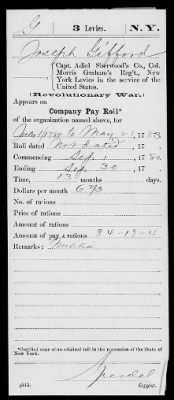 G | 3 Levies. | N.Y.
Joseph Gifford
Capt. Adiel Sherwood's Co., Col.
Morris Graham's Reg't., New
York Levies in the service of the
United States.
(Revolutionary War.)
Appears on
Company Pay Roll*
of the organization named above, for
to May 21, 1783
Roll dated Not dated, 17
Commencing Sep. 1, 1780
Ending Sep. 30, 17
Time, months days.
Dollars per month 6 2/3
No. of rations
Price of rations
Amount of rations
Amount of pay & rations
Remarks:
*Certified copy of an original roll in the possession of the State of
New York.
Copyist.